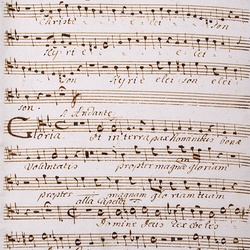 Christe elei son
Kyrie e lei
son Kyrie elei son elei
son.
Andante
Gloria et in terra pax hominibus bonæ
voluntatis propter magnā gloriam
propter magnam gloriam tuam
alla capella
Domine Deus rex cœles